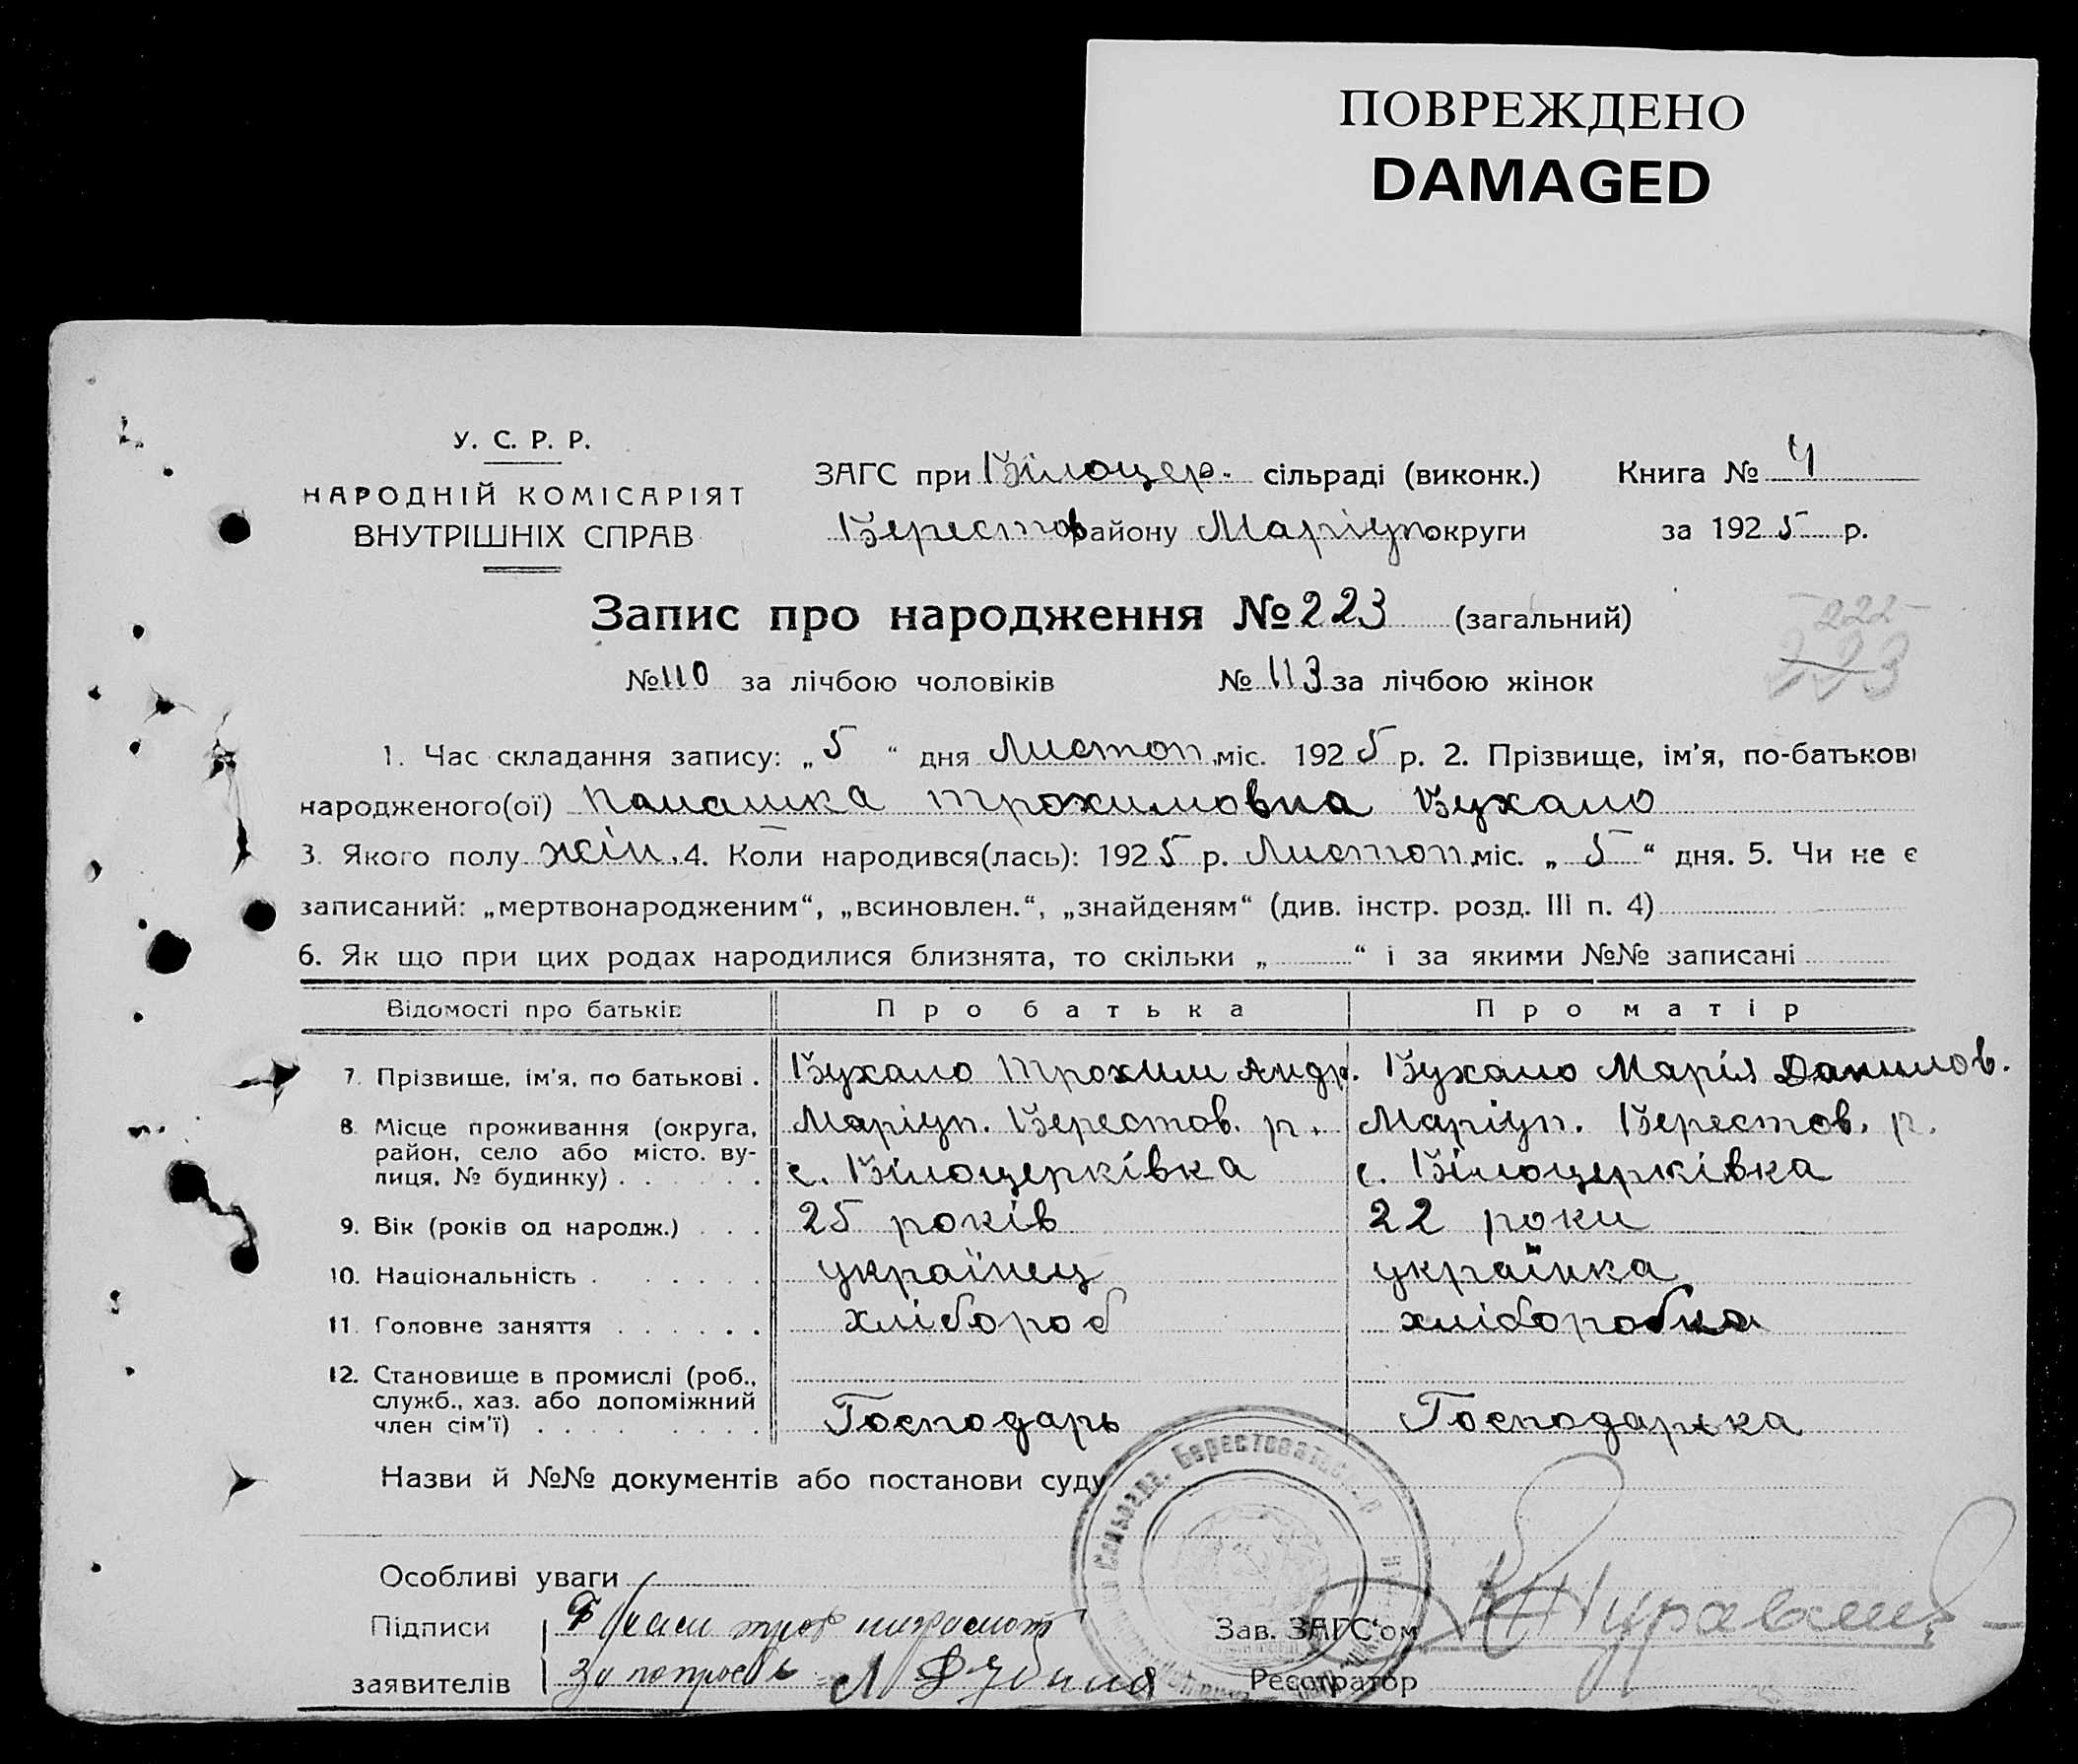 ПОВРЕЖДЕНО
DAMAGED
У. С. Р. Р.
НАРОДНІЙ КОМІСАРІЯТ
ВНУТРІШНІХ СПРАВ
ЗАГС при Білоцер. сільраді (виконк.) Книга № 4
Берестов району Маріуп. округи за 1925 р.
Запис про народження № 223 (загальний)
222
223
№ 110 за лічбою чоловіків № 113 за лічбою жінок
1. Час складання запису: „5“ дня Листоп. міс. 1925 р. 2. Прізвище, ім'я, по-батькові
народженого(ої) Палашка Трохимовна Бухало
3. Якого полу жін. 4. Коли народився(лась): 1925 р. Листоп. міс. „5“ дня. 5. Чи не є
записаний: „мертвонародженим“, „всиновлен.“, „знайденям“ (див. інстр. розд. III п. 4)
6. Як що при цих родах народилися близнята, то скільки „ “ і за якими №№ записані
Відомості про батьків Про батька Про матір
7. Прізвище, ім'я, по батькові . Бухало Трохим Андр. Бухало Марія Данилов.
8. Місце проживання (округа, Маріуп. Берестов. р. Маріуп. Берестов. р.
район, село або місто. ву-
лиця, № будинку) . . . . . . с. Білоцерківка с. Білоцерківка
9. Вік (років од народж.) . . . 25 років 22 роки
10. Національність . . . . . . українец українка
11. Головне заняття . . . . . . хлібороб хліборобка
12. Становище в промислі (роб.,
служб., хаз. або допоміжний
член сім'ї) . . . . . . . . Господарь Господарка
Назви й №№ документів або постанови суду
Сельрада, Берестоватськ
Особливі уваги
Підписи
Зав. ЗАГС'ом
заявителів За
Реєстратор